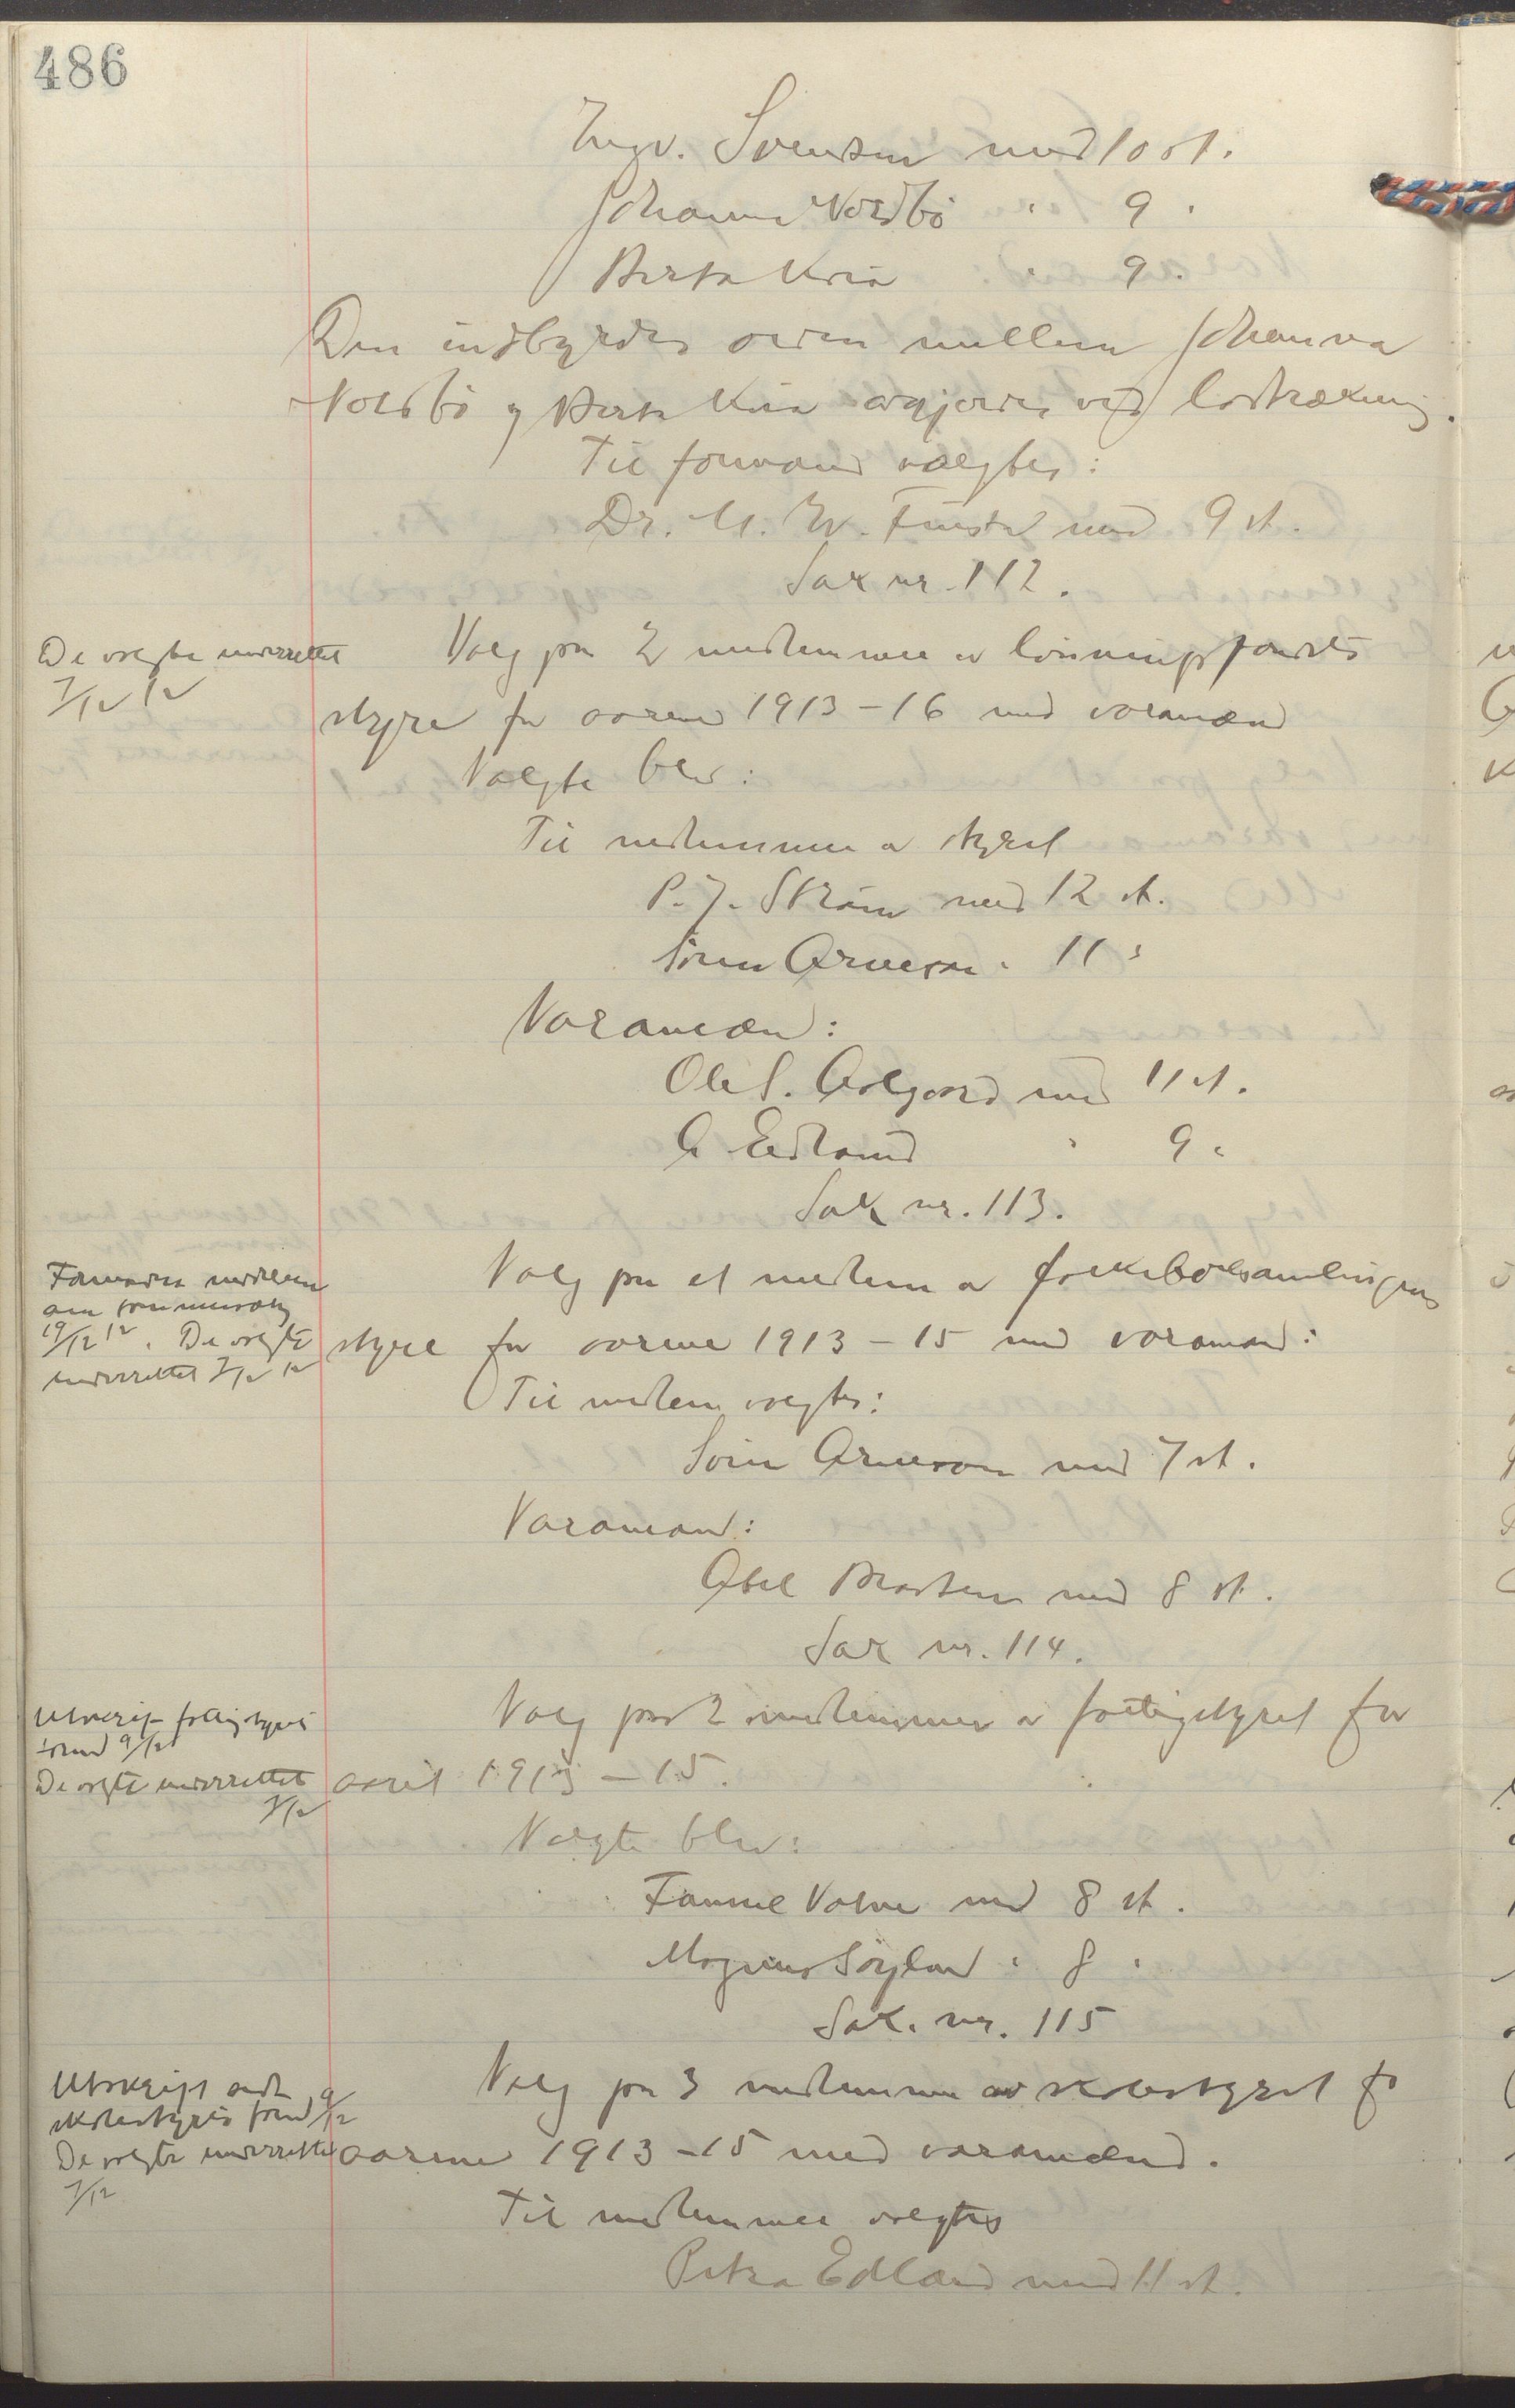 486
Ingv. Svendsen med 10 st.
Johanna Nordbö " 9 "
Berta Kria " 9 "
Den indbyrdes orden mellem Johanna
Nordbö og Berta Kria avgjordes ved lodtrækning.
Til formand valgtes:
Dr. M. W. med 9 st.
Sak nr. 112.
De valgte underrettet
7/12 12
Valg paa 2 medlemmer av lönningsfondets
styre for aarene 1913-16 med varamænd
Valgte blev:
Til medlemmer av styret
P. J. Ström med 12 st.
Sören Arneson " 11 "
Varamænd:
Ole S. Aalgaard med 11 st.
A Edland " 9 "
Sak nr. 113.
Formanden meddelt
om
19/12 12. De valgte
underrettet 7/12 12
Valg paa et medlem av folkeboksamlingens
styre for aarene 1913-15 med varamand:
Til medlem valgtes:
Sören Arneson med 7 st.
Varamand:
Abel Braaten med 8 st.
Sak nr. 114.
Utskrift fattigstyrets
formd 9/12
De valgte underrettet
7/12
Valg paa 2 medlemmer av fattigstyret for
aaret 1913-15.
Valgte blev:
Fannie Valve med 8 st.
Magnus Söyland " 8 "
Sak. nr. 115
Utskrift sendt
skolestyrets formd 9/12
De valgte underrettet
7/12
Valg paa 3 medlemmer av skolestyret for
aarene 1913-15 med varamænd.
Til medlemmer valgtes
Petra Edland med 11 st.